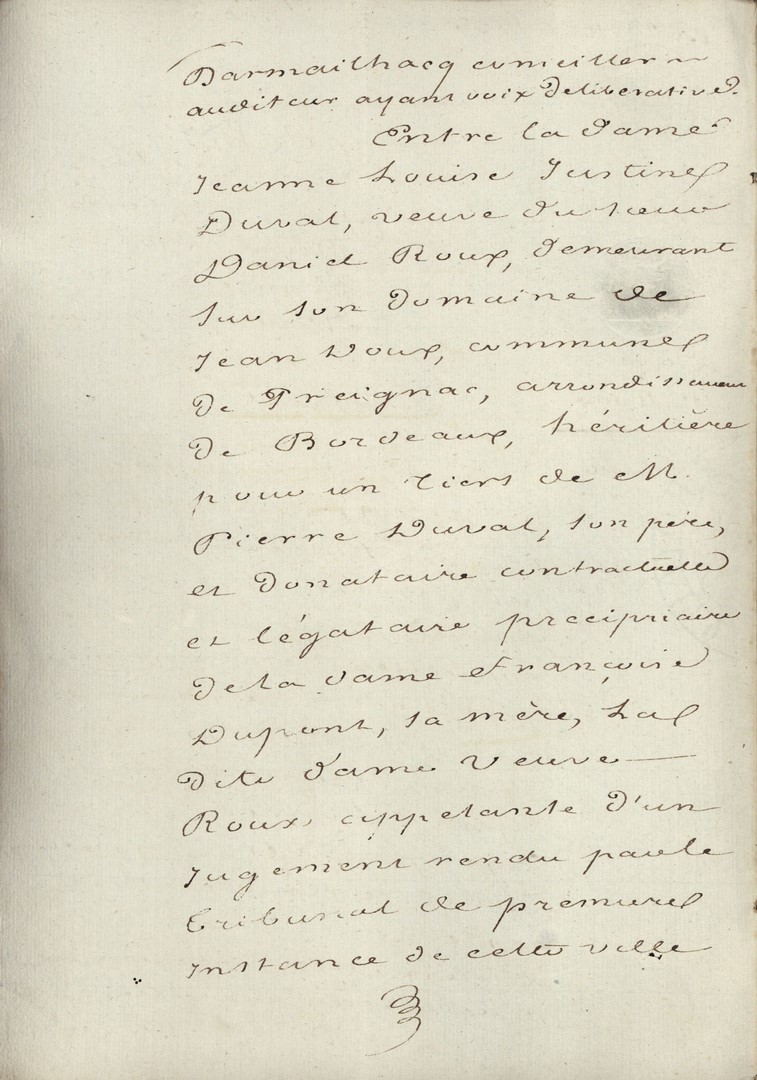 Darmailhacq conseiller
auditeur ayant voix Deliberative.
Entre la dame
Jeanne Louise Justine
Duval, veuve du sieur
Daniel Roux, demeurant
sur son Domaine de
Jean Doux, commune
De Preignac, arrondissement
De Bordeaux, héritière
pour un tiers de M.
Pierre Duval, son père,
et Donataire contractuelle
et légataire precipuaire
De la dame françoise
Dupont, sa mère, La
Dite dame veuve
Roux, appelante d'un
Jugement rendu par le
tribunal de premiere
instance de cette ville